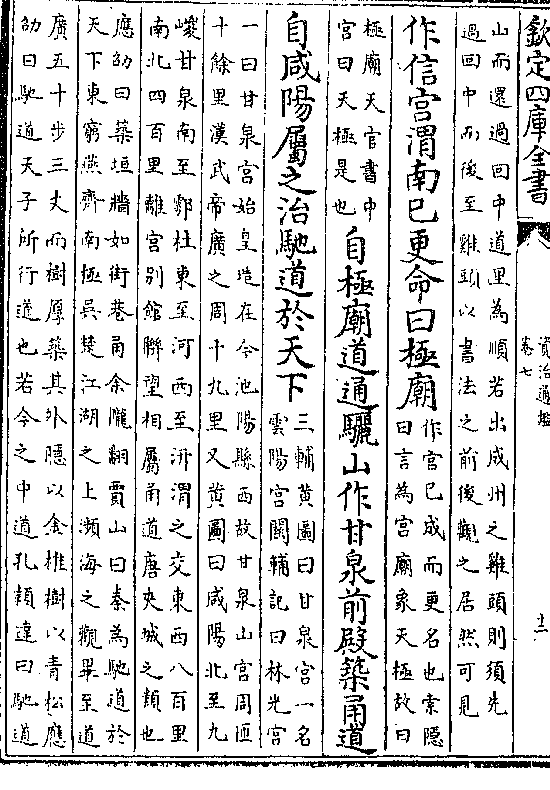 欽定四庫全書
資治通鑑
卷七
十二
山而還過回中道里為順若出成州之雞頭則須先
過回中而後至雞頭以書法之前後觀之居然可見
作信宮渭南已更命曰極廟作宮已成而更名也索隱
曰言為宮廟象天極故曰
極廟天官書中
宮曰天極是也自極廟道通驪山作甘泉前殿築甬道
自咸陽屬之治馳道於天下三輔黃圖曰甘泉宮一名
雲陽宮關輔記曰林光宮
一曰甘泉宮始皇造在今池陽縣西故甘泉山宮周匝
十餘里漢武帝廣之周十九里又黃圖曰咸陽北至九
嵕甘泉南至鄠杜東至河西至汧渭之交東西八百里
南北四百里離宮別館聯望相屬甬道唐夾城之類也
應劭曰築垣牆如街巷甬余隴翻賈山曰秦為馳道於
天下東窮燕齊南極吳楚江湖之上瀕海之觀畢至道
廣五十步三丈而樹厚築其外隱以金椎樹以青松應
劭曰馳道天子所行道也若今之中道孔穎達曰馳道